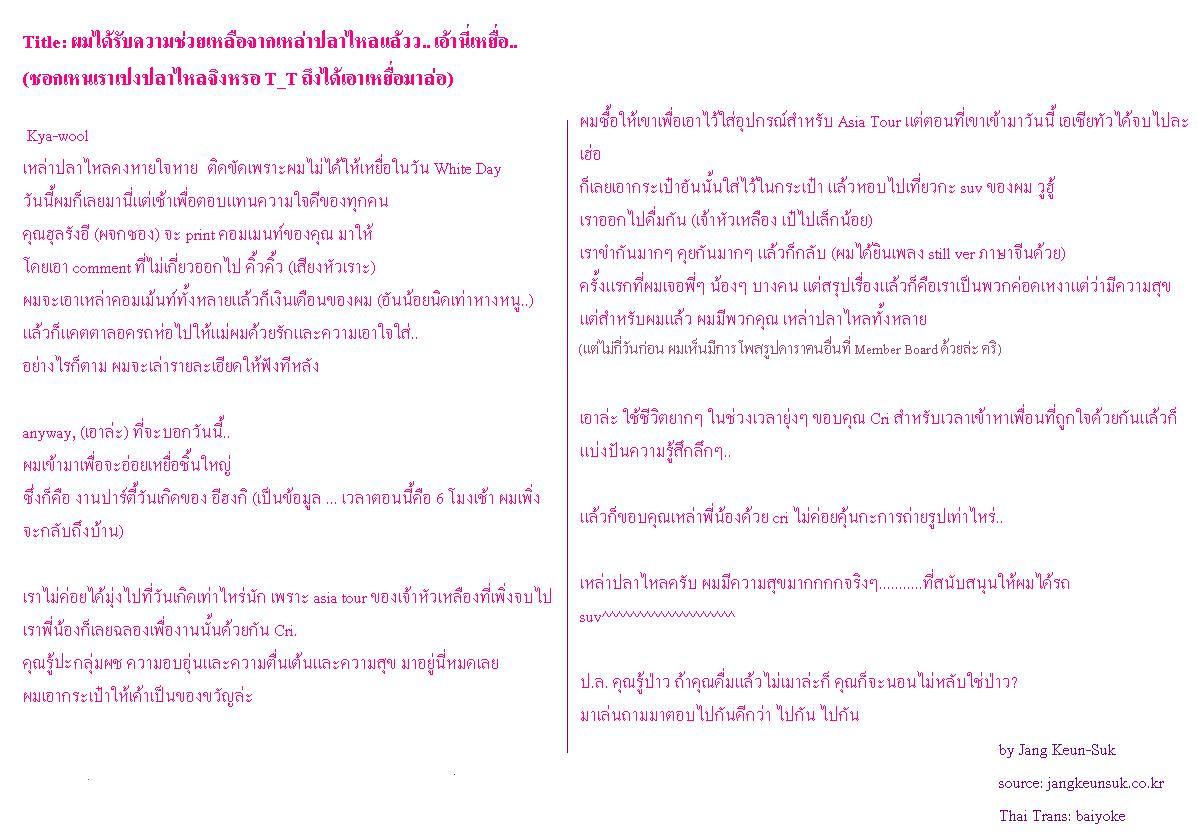 Title: ผมได้รับความช่วยเหลือจากเหล่าปลาไหลแล้วว.. เอ้านี่เหยื่อ..
(ชอกเหนเราเปงปลาไหลจิงหรอ T_T ถึงได้เอาเหยื่อมาล่อ)
Kya-wool
เหล่าปลาไหลคงหายใจหาย ติดขัดเพราะผมไม่ได้ให้เหยื่อในวัน White Day
วันนี้ผมก็เลยมานี่แต่เช้าเพื่อตอบแทนความใจดีของทุกคน
คุณฮุลรังอี (ผจกชอง) จะ print คอมเมนท์ของคุณ มาให้
โดยเอา comment ที่ไม่เกี่ยวออกไป คิ้วคิ้ว (เสียงหัวเราะ)
ผมจะเอาเหล่าคอมเม้นท์ทั้งหลายแล้วก็เงินเดือนของผม (อันน้อยนิดเท่าหางหนู..)
แล้วก็แคตตาลอครถห่อไปให้แม่ผมด้วยรักและความเอาใจใส่..
อย่างไรก็ตาม ผมจะเล่ารายละเอียดให้ฟังทีหลัง
anyway, (เอาล่ะ) ที่จะบอกวันนี้..
ผมเข้ามาเพื่อจะอ่อยเหยื่อชิ้นใหญ่
ซึ่งก็คือ งานปาร์ตี้วันเกิดของ อีฮงกิ (เป็นข้อมูล ... เวลาตอนนี้คือ 6 โมงเช้า ผมเพิ่ง
จะกลับถึงบ้าน)
เราไม่ค่อยได้มุ่งไปที่วันเกิดเท่าไหร่นัก เพราะ asia tour ของเจ้าหัวเหลืองที่เพิ่งจบไป
เราพี่น้องก็เลยฉลองเพื่องานนั้นด้วยกัน Cri.
คุณรู้ปะกลุ่มผช ความอบอุ่นและความตื่นเต้นและความสุข มาอยู่นี่หมดเลย
ผมเอากระเป๋าให้เค้าเป็นของขวัญล่ะ
ผมซื้อให้เขาเพื่อเอาไว้ใส่อุปกรณ์สำหรับ Asia Tour แต่ตอนที่เขาเข้ามาวันนี้ เอเชียทัวได้จบไปละ
เฮ่อ
ก็เลยเอากระเป๋าอันนั้นใส่ไว้ในกระเป๋า แล้วหอบไปเที่ยวกะ suv ของผม วูฮู้
เราออกไปดื่มกัน (เจ้าหัวเหลือง เป๋ไปเล็กน้อย)
เราขำกันมากๆ คุยกันมากๆ แล้วก็กลับ (ผมได้ยินเพลง still ver ภาษาจีนด้วย)
ครั้งแรกที่ผมเจอพี่ๆ น้องๆ บางคน แต่สรุปเรื่องแล้วก็คือเราเป็นพวกค่อดเหงาแต่ว่ามีความสุข
แต่สำหรับผมแล้ว ผมมีพวกคุณ เหล่าปลาไหลทั้งหลาย
(แต่ไม่กี่วันก่อน ผมเห็นมีการโพสรูปดาราคนอื่นที่ Member Board ด้วยล่ะ คริ)
เอาล่ะ ใช้ชีวิตยากๆ ในช่วงเวลายุ่งๆ ขอบคุณ Cri สำหรับเวลาเข้าหาเพื่อนที่ถูกใจด้วยกันแล้วก็
แบ่งปันความรู้สึกลึกๆ..
แล้วก็ขอบคุณเหล่าพี่น้องด้วย cri ไม่ค่อยคุ้นกะการถ่ายรูปเท่าไหร่..
เหล่าปลาไหลครับ ผมมีความสุขมากกกกจริงๆ...........ที่สนับสนุนให้ผมได้รถ
suv^^^^^^^^^^^^^^^^^^^
ป.ล. คุณรู้ป่าว ถ้าคุณดื่มแล้วไม่เมาล่ะก็ คุณก็จะนอนไม่หลับใช่ป่าว?
มาเล่นถามมาตอบไปกันดีกว่า ไปกัน ไปกัน
by Jang Keun-Suk
source: jangkeunsuk.co.kr
Thai Trans: baiyoke